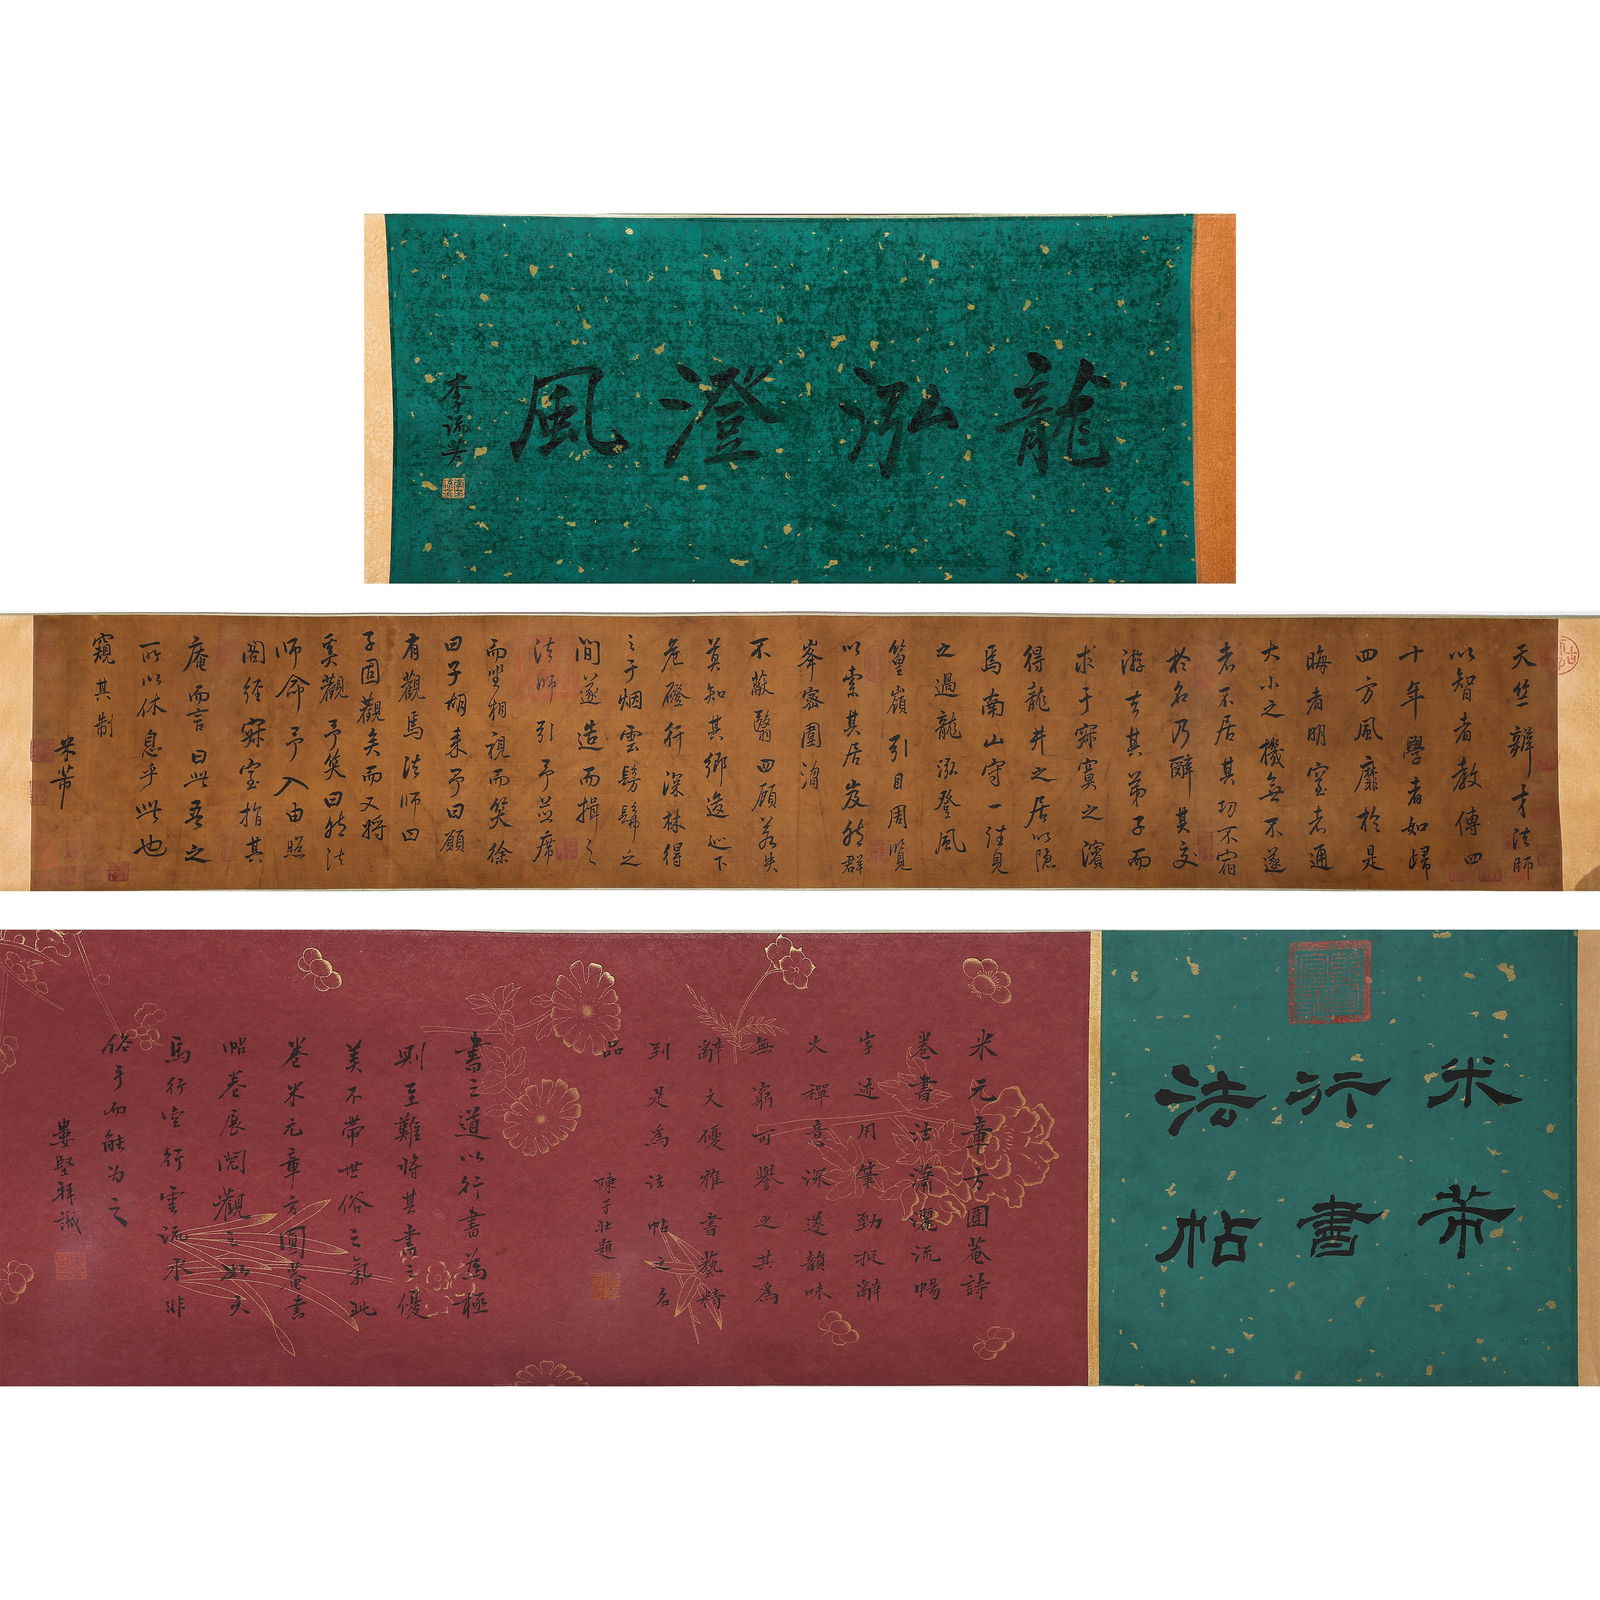 龍泓澄風
李流芳
天竺辯才法師
以智者教傳四
十年學者如歸
四方風靡於是
晦者明窒者通
大小之機無不遂
者不居其功不宿
於名乃辭其交
游去其弟子而
求于寂寞之濱
得龍井之居以隱
焉南山守一往見
之過龍泓登風
篁嶺引目周覽
以索其居岌然群
峯密圍溜
不蔽翳四顧若失
莫知其鄉逡巡下
危磴行深林得
之于烟雲髣髴之
間遂造而揖之
法師引予並席
而坐相視而笑徐
曰子胡來予曰願
有觀焉法師曰
子固觀矣而又將
奚觀予笑曰然法
師命予入由照
閣經寂室指其
庵而言曰此吾之
所以休息乎此也
窺其制
米芾
米芾
行書
法帖
米元章方圓菴詩
卷書法瀟灑流暢
字迹用筆勁挺辭
大禪意深遂韻味
無窮可譽之其為
辭文優雅書藝精
到是為法帖之名
品
陳子壯題
書之道以行書為極
則至難將其書之優
美不帶世俗之氣此
卷米元章方圓菴書
帖卷展閱觀之如天
馬行空行雲流水非
俗手而能為之
婁堅拜識